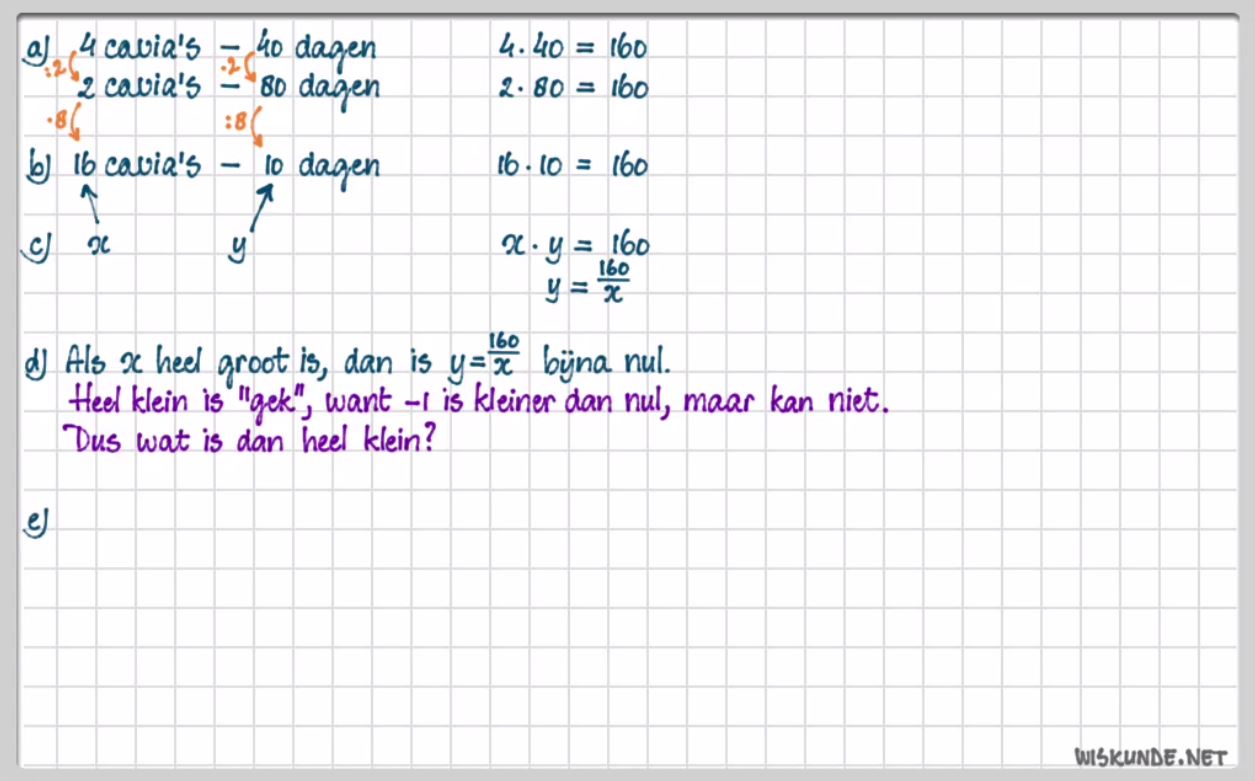 a) 4 cavia's – 40 dagen 4 · 40 = 160
:2 ·2
2 cavia's – 80 dagen 2 · 80 = 160
·8 :8
b) 16 cavia's – 10 dagen 16 · 10 = 160
c) x y x · y = 160
y = 160/x
d) Als x heel groot is, dan is y = 160/x bijna nul.
Heel klein is "gek", want -1 is kleiner dan nul, maar kan niet.
Dus wat is dan heel klein?
e)
WISKUNDE.NET